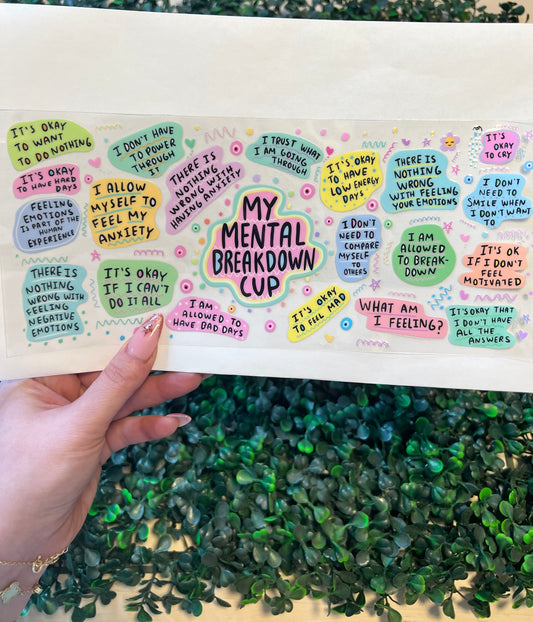 IT'S OKAY
TO WANT
TO DO NOTHING
I DON'T HAVE
TO POWER
THROUGH
IT
I TRUST WHAT
I AM GOING
THROUGH
IT'S OKAY
TO CRY
IT'S OKAY
TO HAVE HARD
DAYS
I ALLOW
MYSELF TO
FEEL MY
ANXIETY
THERE IS
NOTHING
WRONG WITH
HAVING ANXIETY
IT'S OKAY
TO HAVE
LOW ENERGY
DAYS
THERE IS
NOTHING
WRONG
WITH FEELING
YOUR EMOTIONS
I DON'T
NEED TO
SMILE WHEN
I DON'T WANT
FEELING
EMOTIONS
IS PART OF THE
HUMAN
EXPERIENCE
MY
MENTAL
BREAKDOWN
CUP
I DON'T
NEED TO
COMPARE
MYSELF
TO
OTHERS
I AM
ALLOWED
TO BREAK-
DOWN
IT'S OK
IF I DON'T
FEEL
MOTIVATED
THERE IS
NOTHING
WRONG WITH
FEELING
NEGATIVE
EMOTIONS
IT'S OKAY
IF I CAN'T
DO IT ALL
I AM
ALLOWED TO
HAVE BAD DAYS
IT'S OKAY
TO FEEL MAD
WHAT AM
I FEELING?
IT'S OKAY THAT
I DON'T HAVE
ALL THE
ANSWERS